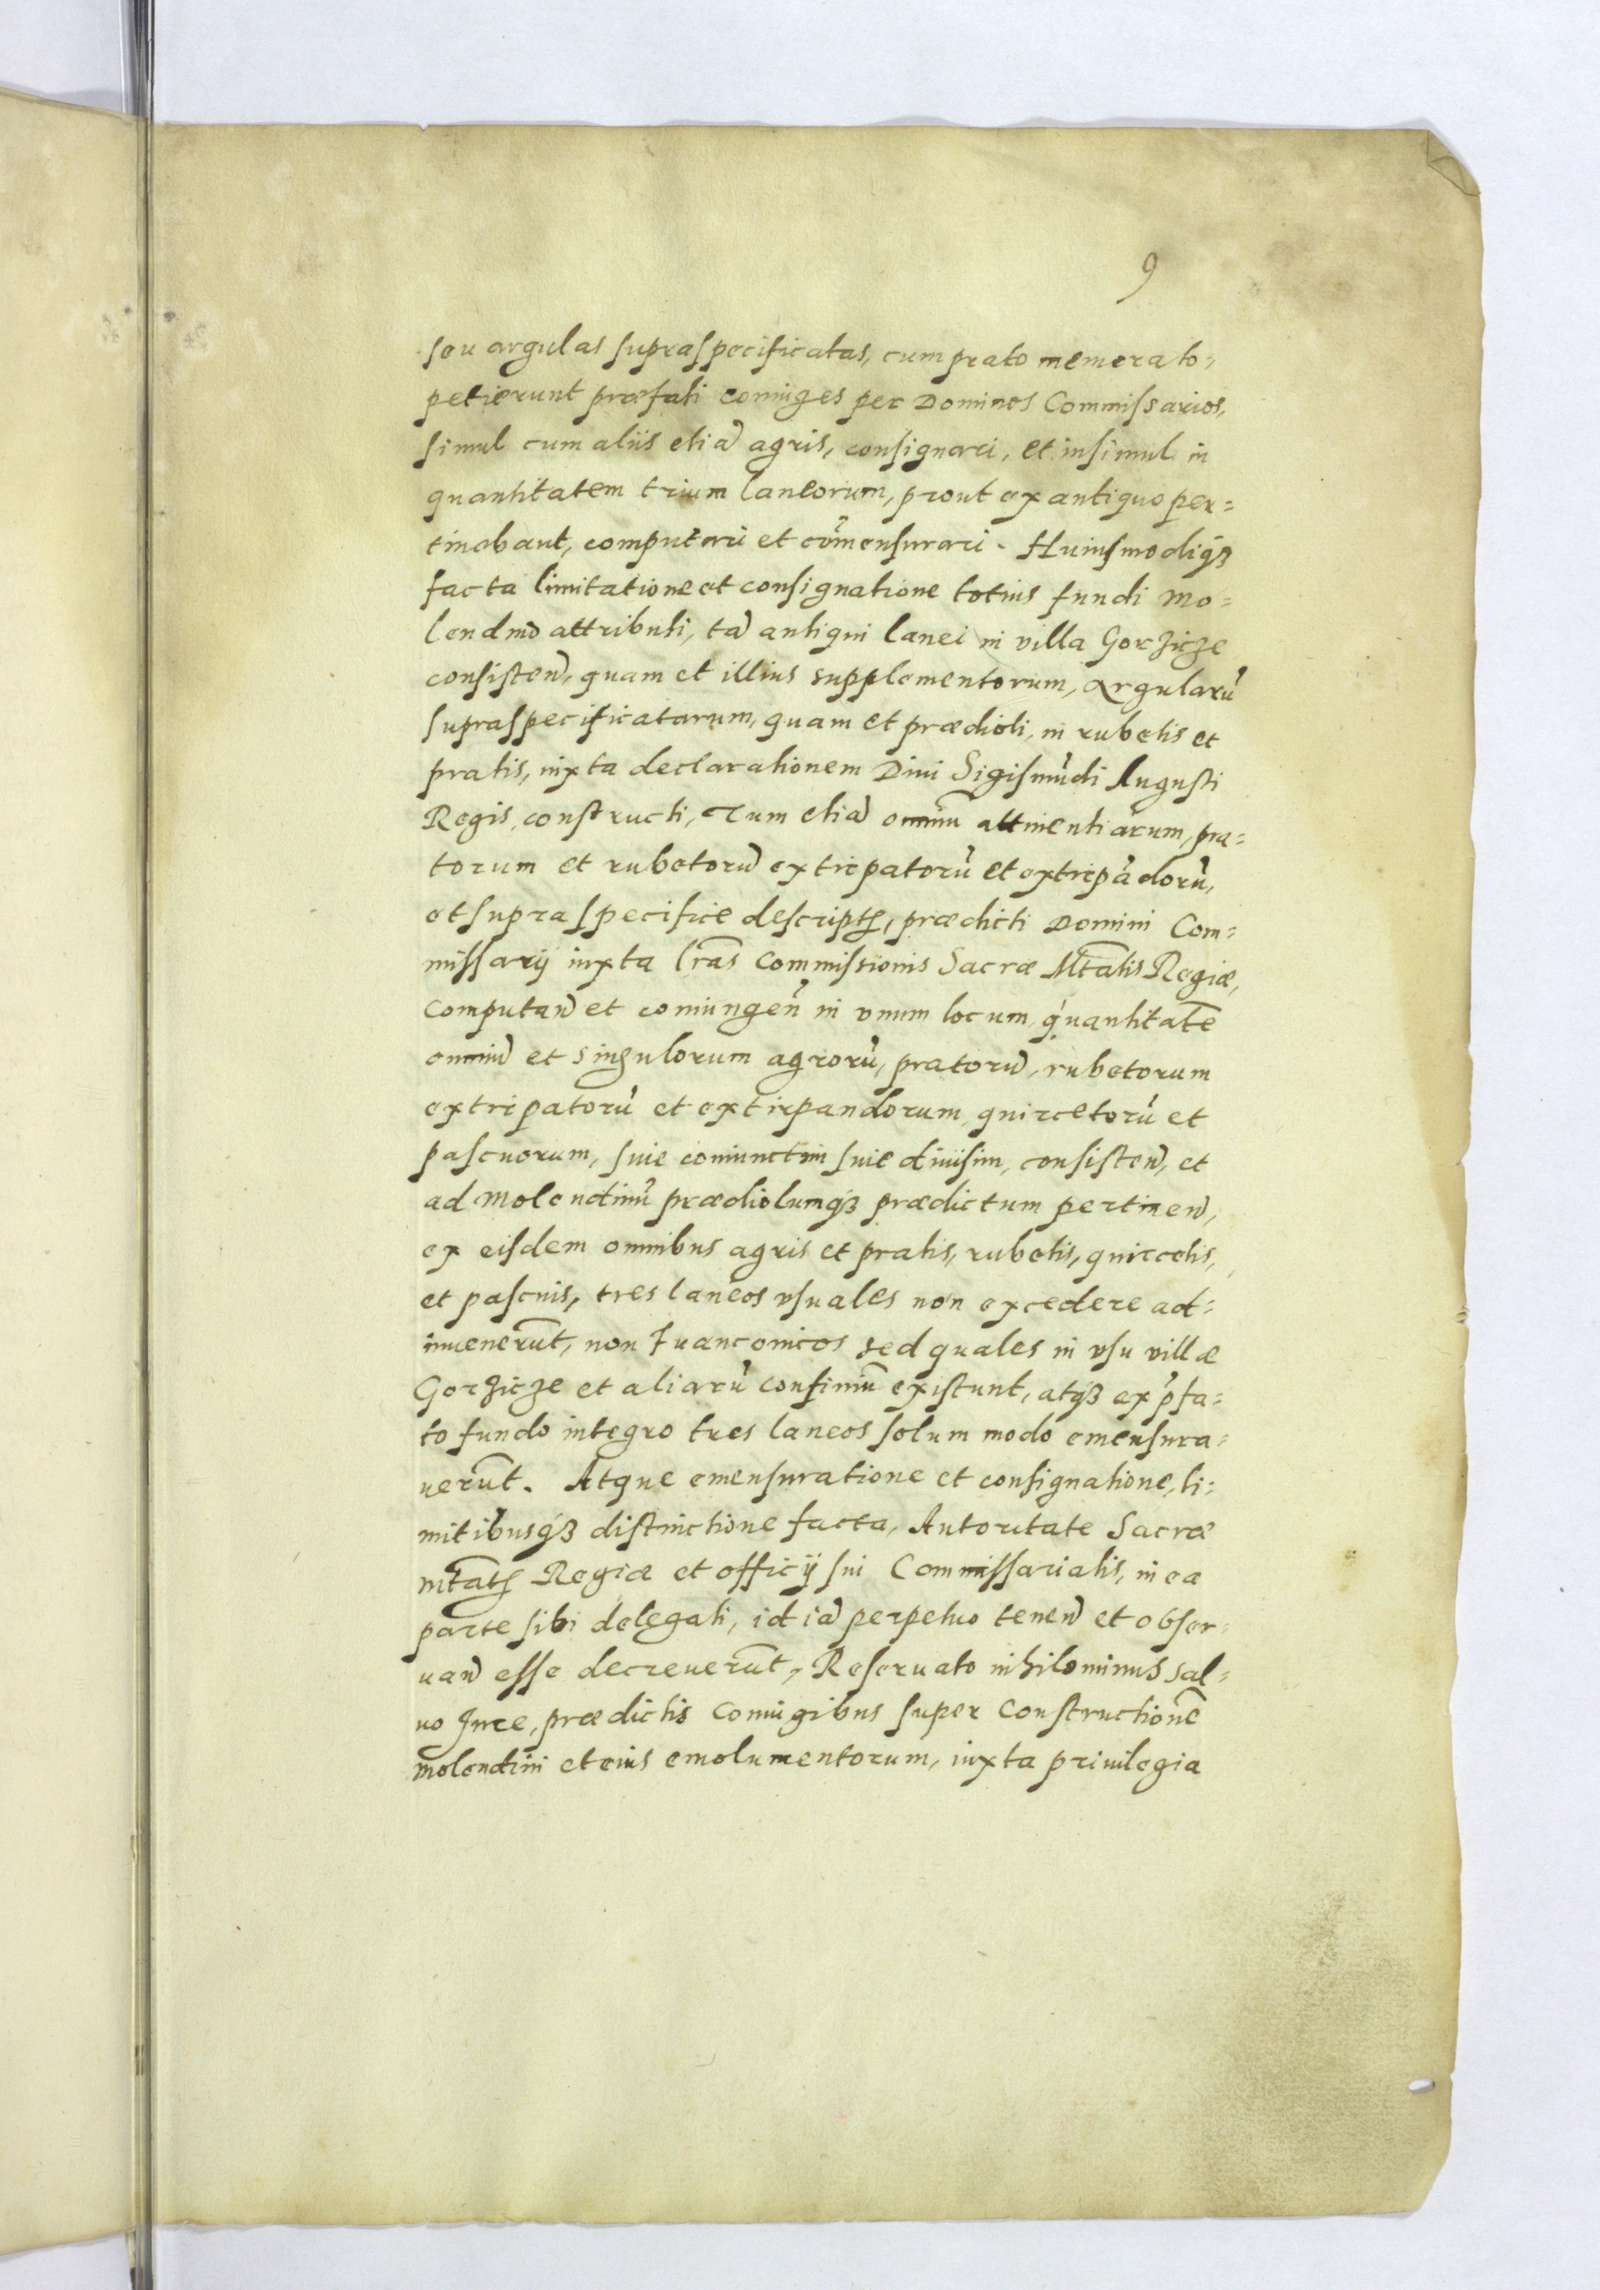 9
seu argulas supraspecificatas, cum prato memorato,
petierunt præfati coniuges per Dominos Commissarios,
simul cum aliis etiā agris, consignari, et insimul in
quantitatem trium laneorum, prout ex antiquo per=
tinebant, computari et com̄ensurari. Huiusmodiqȝ
facta limitatione et consignatione totius fundi mo=
lendino attributi, tā antiqui lanei in villa Gorzicze
consisten̄, quam et illius supplementorum, argularū
supraspecificatarum, quam et prædioli, in rubetis et
pratis, iuxta declarationem Diui Sigismūdi Augusti
Regis, constructi, Tum etiā omniū attinentiarum, pra=
torum et rubetorū extirpatorū et extirpādorū,
et supra specifice descriptꝭ, prædicti Domini Com=
missarij iuxta lr̄as Commissionis Sacræ Mtātis Regiæ,
computan̄ et coniungen̄ in vnum locum, quantitatē
omniū et singulorum agrorū, pratorū, rubetorum
extirpatorū et extirpandorum, quircetorū et
pascuorum, siue coniunctim siue diuisim, consisten̄, et
ad molendinū prædiolumqȝ prædictum pertinen̄,
ex eisdem omnibus agris et pratis, rubetis, quircetis,
et pascuis, tres laneos vsuales non excedere ad=
inuenerūt, non Franconicos sed quales in vsu villæ
Gorzicze et aliarū confiniū existunt, atqȝ ex p̄fa=
to fundo integro tres laneos solum modo emensura=
uerūt. Atque emensuratione et consignatione, li=
mitibusqȝ distinctione facta, Autoritate Sacræ
mtātꝭ Regiæ et officij sui Commissarialis, in ea
parte sibi delegati, id iā perpetuo tenen̄ et obser=
uan̄ esse decreuerūt, Reseruato nihilominus sal=
uo Jure, prædictis Coniugibus super Constructionē
molendini et eius emolumentorum, iuxta priuilegia